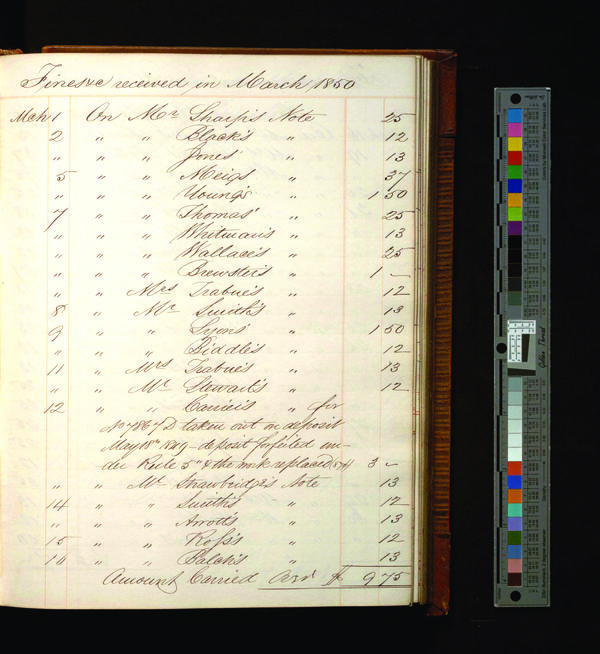 Fines &c received in March 1850
Mch 1 On Mr Sharp's Note 25
2 " " Black's " 12
" " " Jones' " 13
5 " " Meigs " 37
" " " Young's " 1 50
7 " " Thomas' " 25
" " " Whitman's " 13
" " " Wallace's " 25
" " " Brewster's " 1 –
" " Mrs Trabue's " 12
8 " Mr Smith's " 13
9 " " Lyons' " 1 50
" " " Biddle's " 12
11 " Mrs Trabue's " 13
" " Mr Stewart's " 12
12 " " " for
No 7867 D taken out on deposit
May 18th 1849 - deposit forfeited un-
der Rule 5th & the work replaced 3 –
" " Mr Strawbridge's Note 13
14 " " Smith's " 12
" " " Arrott's " 13
15 " " Ross's " 12
16 " " Balch's " 13
Amount Carried $ 9 75